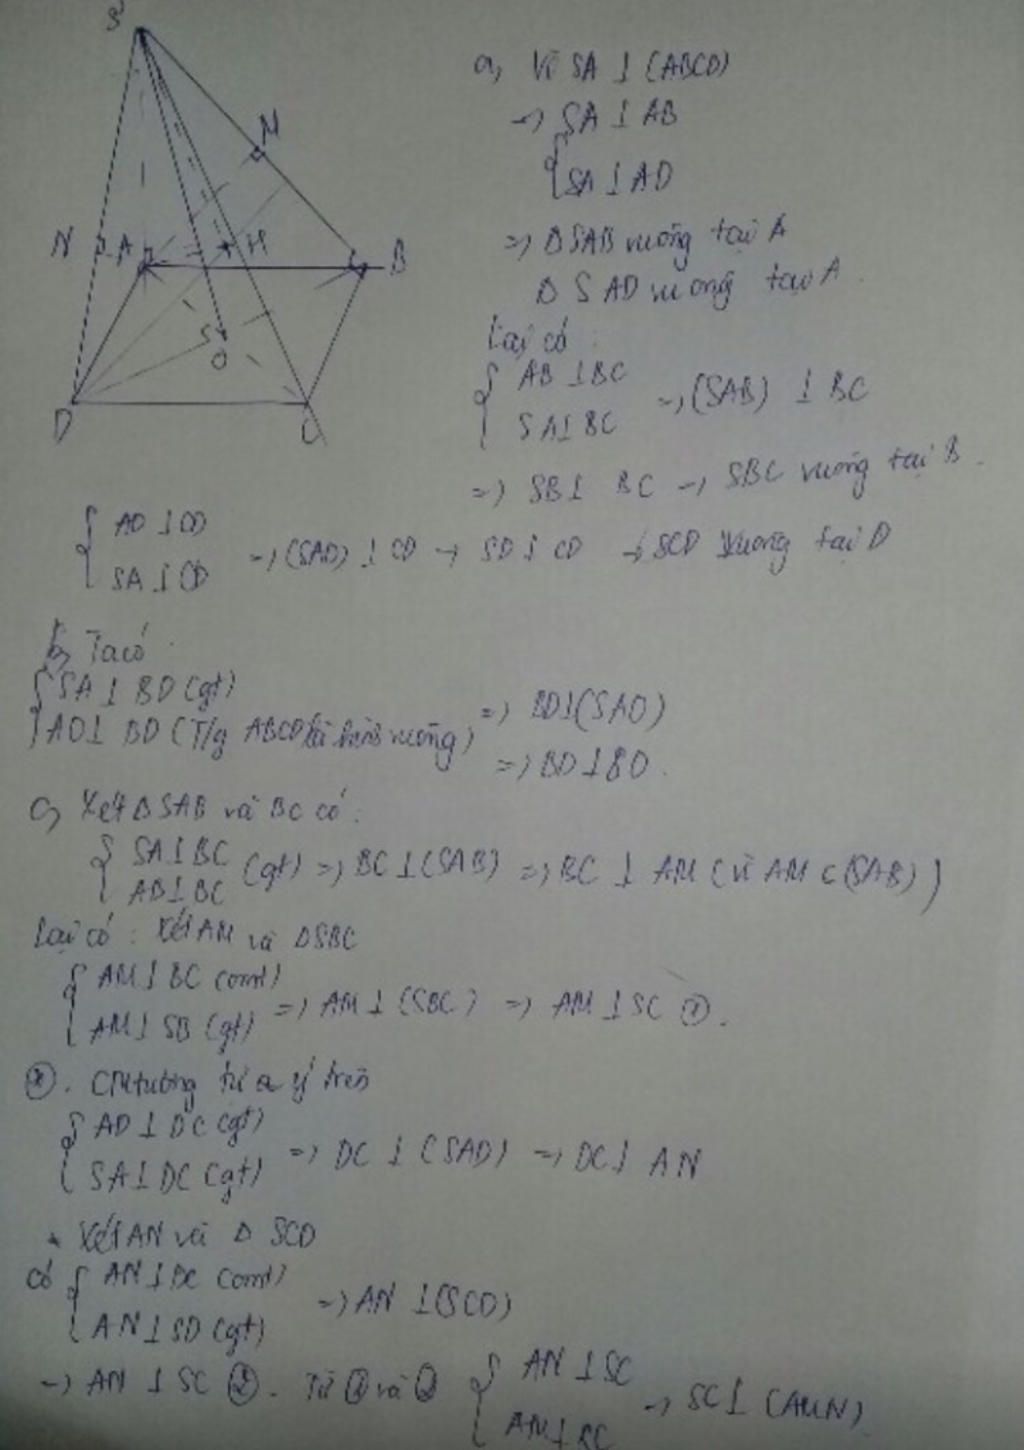 S
M
N A H B
O
D C
a, Vì SA ⊥ (ABCD)
→ { SA ⊥ AB
SA ⊥ AD
=> Δ SAB vuông tại A
Δ SAD vuông tại A.
Lại có:
{ AB ⊥ BC
SA ⊥ BC => (SAB) ⊥ BC
=> SB ⊥ BC → SBC vuông tại B.
{ AD ⊥ CD
SA ⊥ CD => (SAD) ⊥ CD → SD ⊥ CD → SCD vuông tại D
b, Ta có:
{ SA ⊥ BD (gt)
AO ⊥ BD (T/g ABCD là hình vuông) => BD ⊥ (SAO)
=> BD ⊥ SO.
c, Xét Δ SAB và BC có:
{ SA ⊥ BC
AB ⊥ BC (gt) => BC ⊥ (SAB) => BC ⊥ AM (vì AM ⊂ (SAB))
Lại có: Xét AM và Δ SBC
{ AM ⊥ BC (cmt)
AM ⊥ SB (gt) => AM ⊥ (SBC) => AM ⊥ SC ①.
CM tương tự ý trên
{ AD ⊥ DC (gt)
SA ⊥ DC (gt) => DC ⊥ (SAD) => DC ⊥ AN
* Xét AN và Δ SCD
có { AN ⊥ DC (cmt)
AN ⊥ SD (gt) => AN ⊥ (SCD)
→ AN ⊥ SC ②. Từ ① và ② { AN ⊥ SC
AM ⊥ SC → SC ⊥ (AMN)